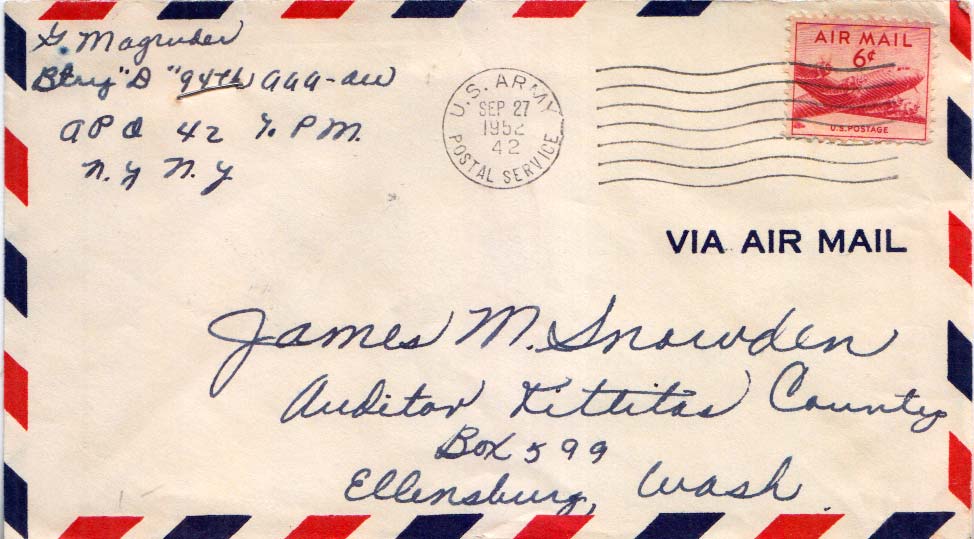 G Magruder
Btry "D" 94th AAA-AW
APO 42 % P M.
N.Y N.Y
U.S. ARMY
SEP 27
1952
42
POSTAL SERVICE
AIR MAIL
6¢
U.S. POSTAGE
VIA AIR MAIL
James M. Snowden
Auditor Kittitas County
Box 599
Ellensburg, Wash.